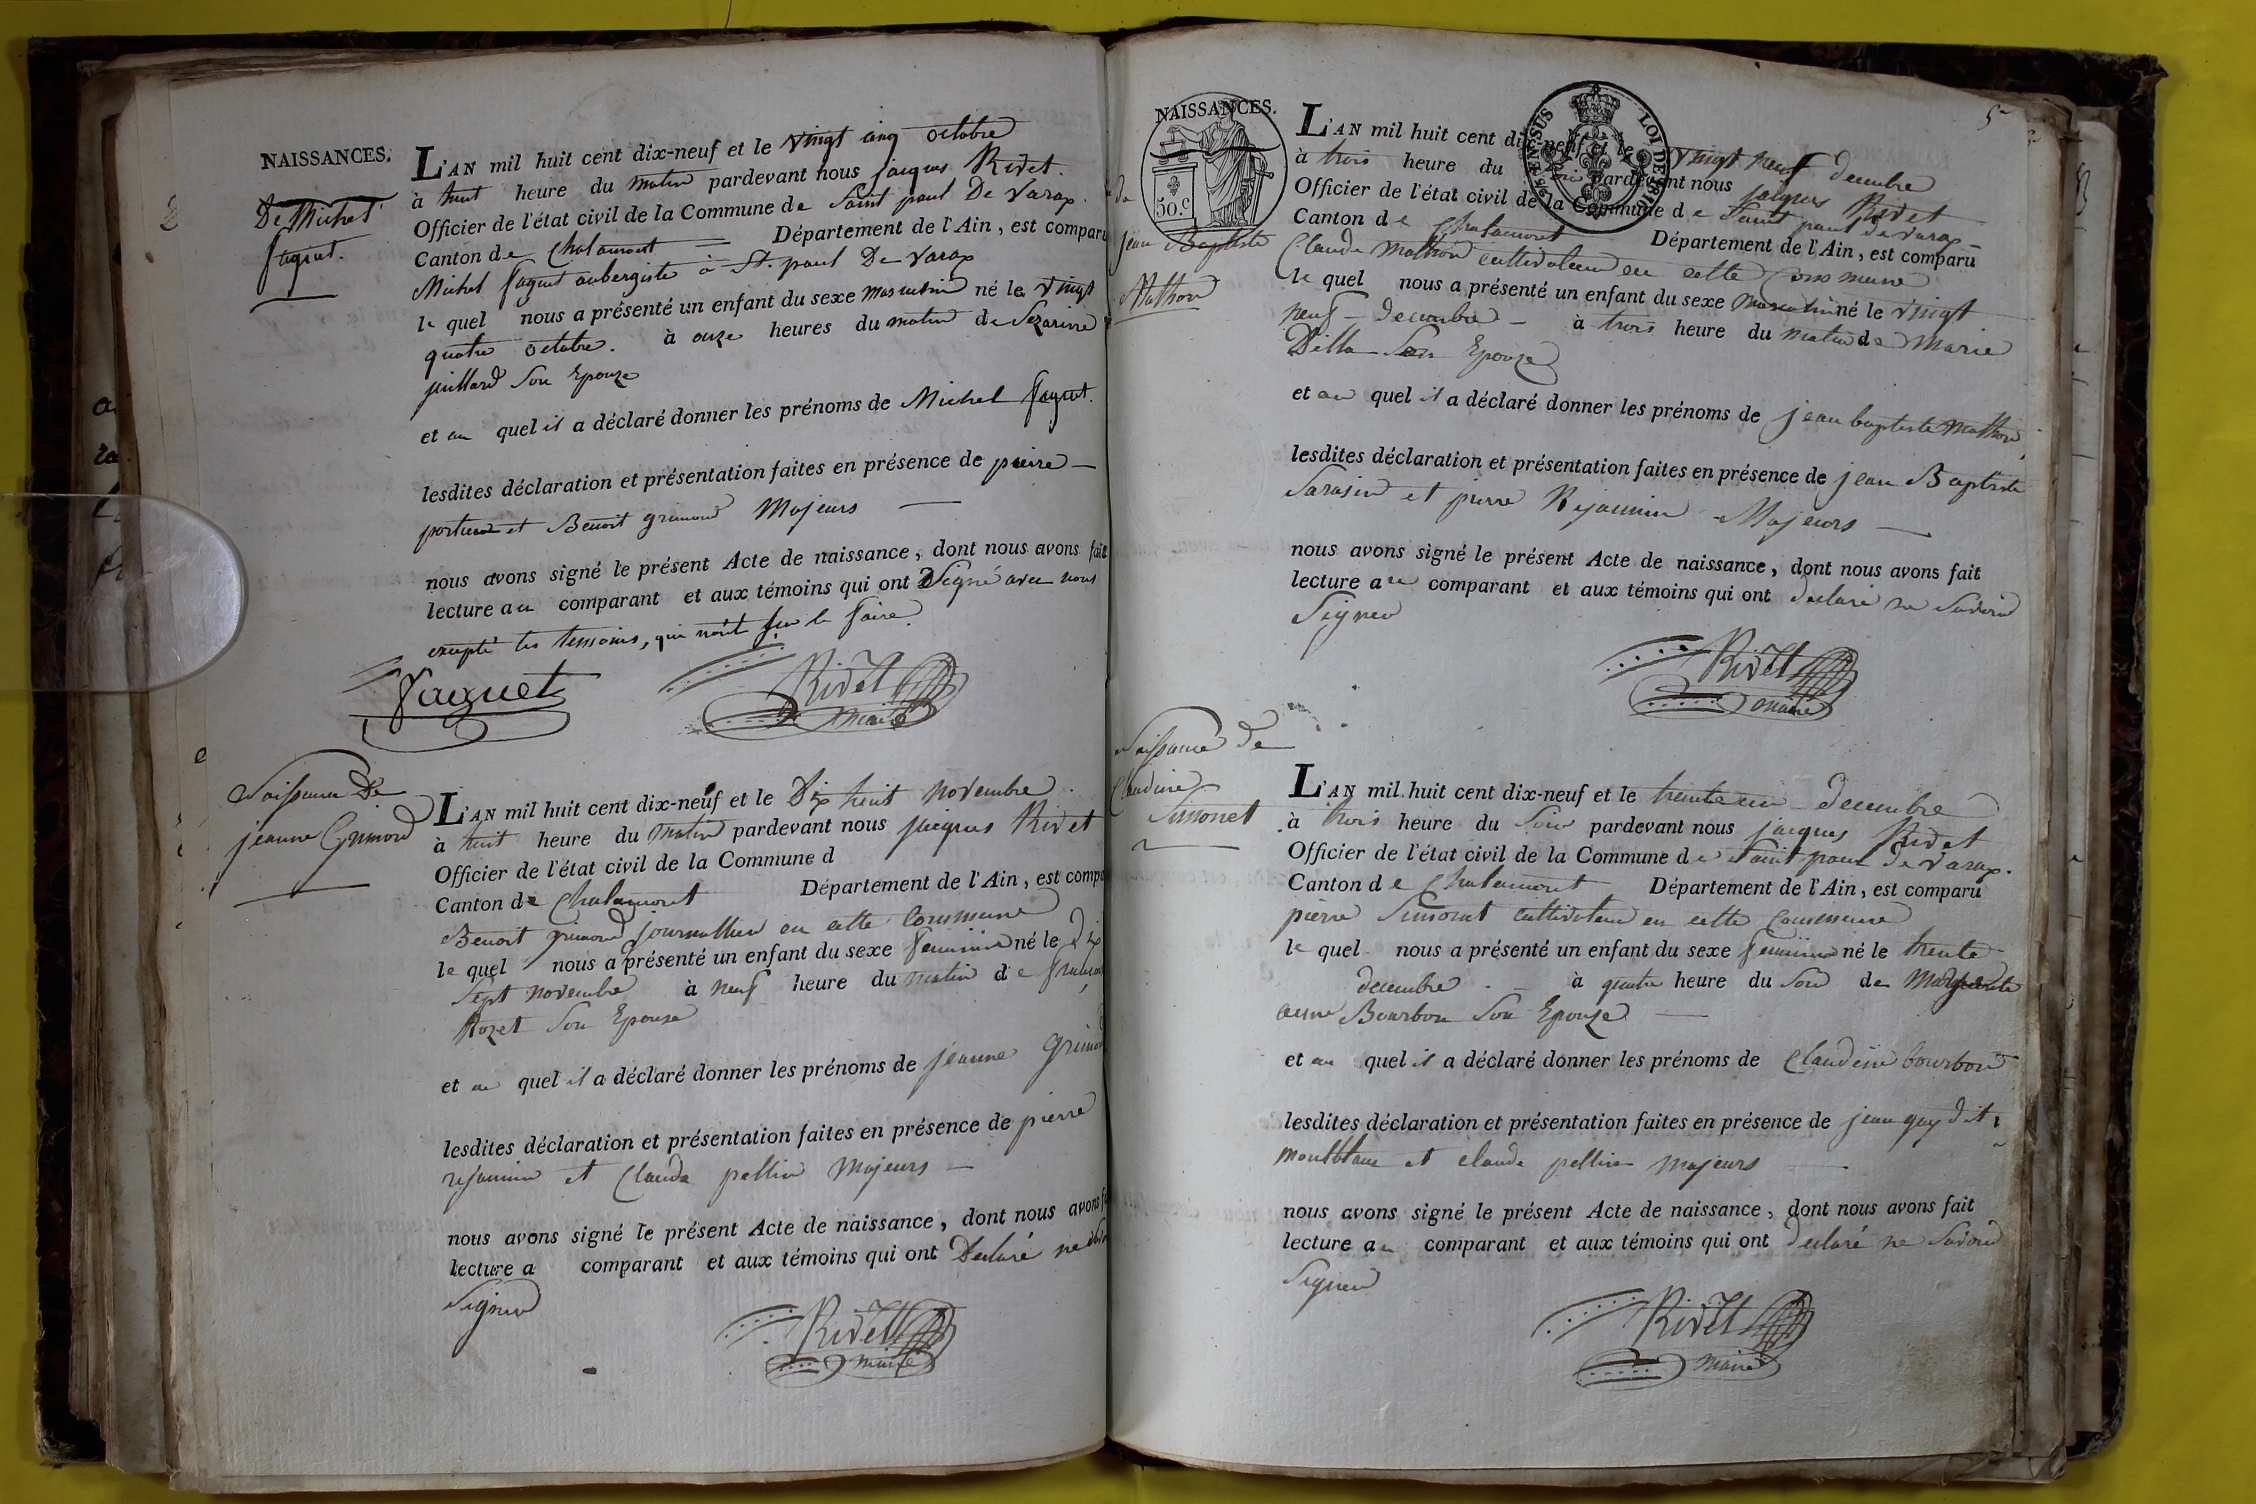 NAISSANCES.
De Michel
faguet.
L'AN mil huit cent dix-neuf et le vingt cinq octobre
à huit heure du matin pardevant nous jacques Rivet.
Officier de l'état civil de la Commune de Saint paul De Varax.
Canton de Chalamont Département de l'Ain, est comparu
Michel faguet aubergiste à St. paul De Varax
le quel nous a présenté un enfant du sexe masculin né le vingt
quatre octobre. à onze heures du matin de
juillard Son Epouze
et au quel il a déclaré donner les prénoms de Michel faguet.
lesdites déclaration et présentation faites en présence de pierre
et Benoit grimond Majeurs
nous avons signé le présent Acte de naissance, dont nous avons fait
lecture au comparant et aux témoins qui ont Signé avec nous
excepté les temoins, qui n'ont sçu le faire.
Faguet
Rivet
maire
Naissance De
jeanne Grimond
L'AN mil huit cent dix-neuf et le Dix huit novembre
à huit heure du matin pardevant nous jacques Rivet
Officier de l'état civil de la Commune d
Canton de Chalamont Département de l'Ain, est compa
Benoit grimond journallier en cette Commune
le quel nous a présenté un enfant du sexe feminin né le dix
Sept novembre à neuf heure du matin de
Rozet Son Epouse
et au quel il a déclaré donner les prénoms de jeanne Grimon
lesdites déclaration et présentation faites en présence de pierre
rejaunin et Claude pellin Majeurs
nous avons signé le présent Acte de naissance, dont nous avons f
lecture a comparant et aux témoins qui ont Declaré ne
Signer
Rivet
maire
NAISSANCES.
50.c
5
jean Baptiste
Mathon
L'AN mil huit cent dix-neuf et le vingt neuf decembre
à trois heure du pardevant nous jacques Rivet
Officier de l'état civil de la Commune de Saint paul de Varax
Canton de Chalamont Département de l'Ain, est comparu
Claude Mathon cultivateur en cette Commune
le quel nous a présenté un enfant du sexe masculin né le vingt
neuf decembre à trois heure du matin de Marie
Dilla Son Epouze
et au quel il a déclaré donner les prénoms de jean baptiste Mathon
lesdites déclaration et présentation faites en présence de jean Baptiste
Sarasin et pierre Rejaunin Majeurs
nous avons signé le présent Acte de naissance, dont nous avons fait
lecture au comparant et aux témoins qui ont declaré ne Savoir
Signer
Rivet
maire
Naissance de
Claudine
Simonet
L'AN mil huit cent dix-neuf et le trente un decembre
à trois heure du Soir pardevant nous jacques Rivet
Officier de l'état civil de la Commune de Saint paul de Varax.
Canton de Chalamont Département de l'Ain, est comparu
pierre Simonet cultivateur en cette Commune
le quel nous a présenté un enfant du sexe feminin né le trente
decembre. à quatre heure du Soir de Marguerite
Bourbon Son Epouze
et au quel il a déclaré donner les prénoms de Claudine bourbon
lesdites déclaration et présentation faites en présence de jean guy dit
montblanc et claude pellin majeurs
nous avons signé le présent Acte de naissance, dont nous avons fait
lecture au comparant et aux témoins qui ont declaré ne Savoir
Signer
Rivet
maire